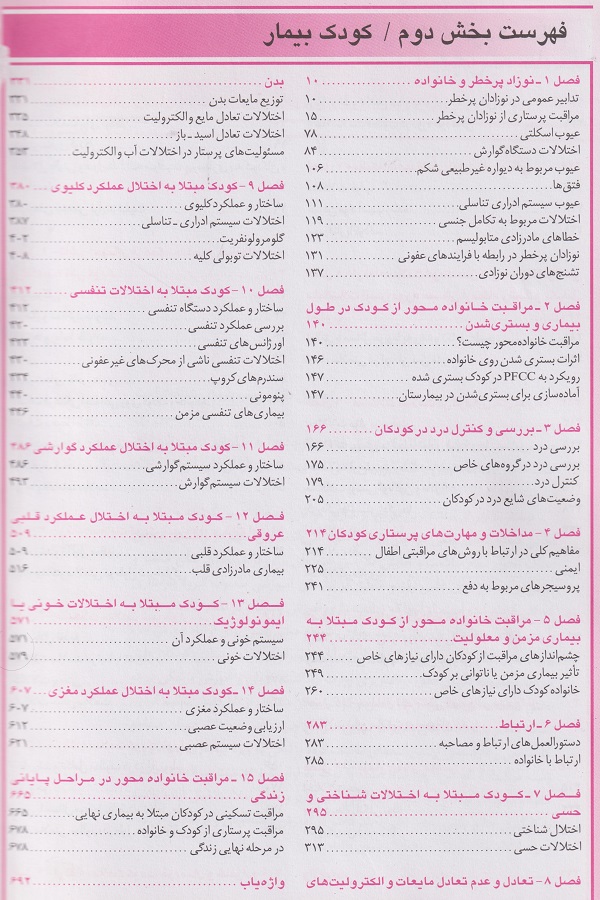 فهرست بخش دوم / کودک بیمار
فصل ۱ ـ نوزاد پرخطر و خانواده ۱۰
تدابیر عمومی در نوزادان پرخطر ۱۰
مراقبت پرستاری از نوزادان پرخطر ۱۵
عیوب اسکلتی ۷۸
اختلالات دستگاه گوارش ۸۴
عیوب مربوط به دیواره غیرطبیعی شکم ۱۰۶
فتق‌ها ۱۰۸
عیوب سیستم ادراری تناسلی ۱۱۱
اختلالات مربوط به تکامل جنسی ۱۱۹
خطاهای مادرزادی متابولیسم ۱۲۳
نوزادان پرخطر در رابطه با فرایندهای عفونی ۱۳۱
تشنج‌های دوران نوزادی ۱۳۷
فصل ۲ ـ مراقبت خانواده محور از کودک در طول
بیماری و بستری شدن ۱۴۰
مراقبت خانواده‌محور چیست؟ ۱۴۰
اثرات بستری شدن روی خانواده ۱۴۶
رویکرد به PFCC در کودک بستری شده ۱۴۷
آماده‌سازی برای بستری‌شدن در بیمارستان ۱۴۷
فصل ۳ ـ بررسی و کنترل درد در کودکان ۱۶۶
بررسی درد ۱۶۶
بررسی درد در گروه‌های خاص ۱۷۵
کنترل درد ۱۷۹
وضعیت‌های شایع درد در کودکان ۲۰۵
فصل ۴ ـ مداخلات و مهارت‌های پرستاری کودکان ۲۱۴
مفاهیم کلی در ارتباط با روش‌های مراقبتی اطفال ۲۱۴
ایمنی ۲۲۵
پروسیجرهای مربوط به دفع ۲۴۱
فصل ۵ ـ مراقبت خانواده محور از کودک مبتلا به
بیماری مزمن و معلولیت ۲۴۴
چشم‌اندازهای مراقبت از کودکان دارای نیازهای خاص ۲۴۴
تأثیر بیماری مزمن یا ناتوانی بر کودک ۲۴۹
خانواده کودک دارای نیازهای خاص ۲۶۰
فصل ۶ ـ ارتباط ۲۸۳
دستورالعمل‌های ارتباط و مصاحبه ۲۸۳
ارتباط با خانواده ۲۸۵
فصل ۷ ـ کودک مبتلا به اختلالات شناختی و
حسی ۲۹۵
اختلال شناختی ۲۹۵
اختلالات حسی ۳۱۳
فصل ۸ ـ تعادل و عدم تعادل مایعات و الکترولیت‌های
بدن ۳۳۱
توزیع مایعات بدن ۳۳۱
اختلالات تعادل مایع و الکترولیت ۳۳۵
اختلالات تعادل اسید ـ باز ۳۴۸
مسئولیت‌های پرستار در اختلالات آب و الکترولیت ۳۵۳
فصل ۹ ـ کودک مبتلا به اختلال عملکرد کلیوی ۳۸۰
ساختار و عملکرد کلیوی ۳۸۰
اختلالات سیستم ادراری ـ تناسلی ۳۸۷
گلومرولونفریت ۴۰۲
اختلالات توبولی کلیه ۴۰۸
فصل ۱۰ ـ کودک مبتلا به اختلالات تنفسی ۴۱۲
ساختار و عملکرد دستگاه تنفسی ۴۱۲
بررسی عملکرد تنفسی ۴۲۰
اورژانس‌های تنفسی ۴۲۳
اختلالات تنفسی ناشی از محرک‌های غیرعفونی ۴۳۰
سندرم‌های کروپ ۴۳۴
پنومونی ۴۴۰
بیماری‌های تنفسی مزمن ۴۴۶
فصل ۱۱ ـ کودک مبتلا به اختلال عملکرد گوارشی ۴۸۶
ساختار و عملکرد سیستم گوارشی ۴۸۶
اختلالات سیستم گوارش ۴۹۳
فصل ۱۲ ـ کودک مبتلا به اختلال عملکرد قلبی
عروقی ۵۰۹
ساختار و عملکرد قلبی ۵۰۹
بیماری مادرزادی قلب ۵۱۶
فصل ۱۳ ـ کودک مبتلا به اختلالات خونی یا
ایمونولوژیک ۵۷۱
سیستم خونی و عملکرد آن ۵۷۱
اختلالات خونی ۵۷۹
فصل ۱۴ ـ کودک مبتلا به اختلال عملکرد مغزی ۶۰۷
ساختار و عملکرد مغزی ۶۰۷
ارزیابی وضعیت عصبی ۶۱۲
اختلالات سیستم عصبی ۶۲۱
فصل ۱۵ ـ مراقبت خانواده محور در مراحل پایانی
زندگی ۶۶۵
مراقبت تسکینی در کودکان مبتلا به بیماری نهایی ۶۶۵
مراقبت پرستاری از کودک و خانواده ۶۷۸
در مرحله نهایی زندگی ۶۷۸
واژه‌یاب ۶۹۲